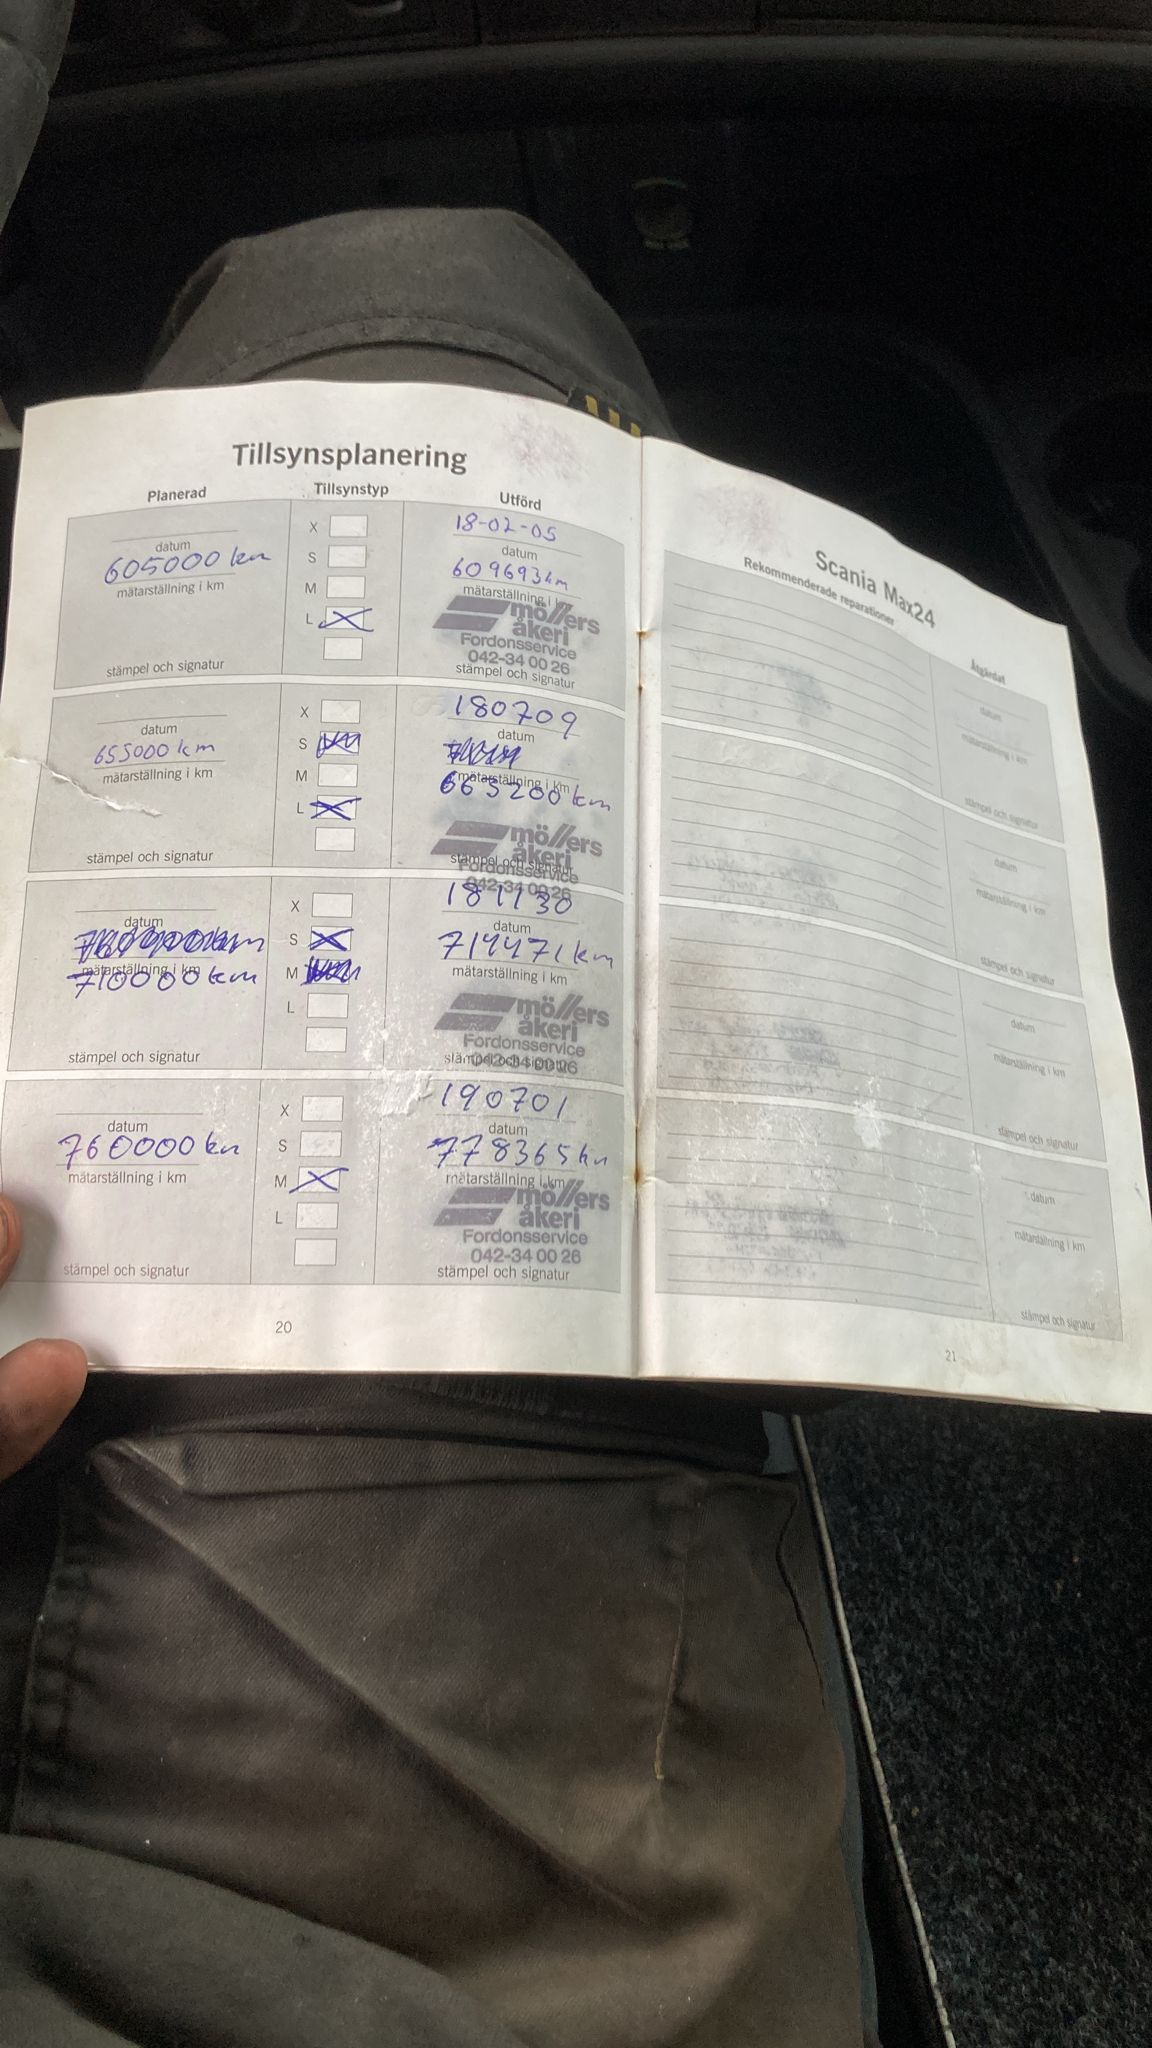 Tillsynsplanering
Planerad Tillsynstyp Utförd
X 18-02-05
datum S datum
605000 km 609693km
mätarställning i km M mätarställning i
L möllers
åkeri
Fordonsservice
042-34 00 26
stämpel och signatur stämpel och signatur
X 180709
datum S datum
655000 km
mätarställning i km M mätarställning i km
L 665200 km
möllers
åkeri
stämpel och signatur stämpel och signatur
Fordonsservice
042-34 00 26
X 181130
datum S datum
714471 km
mätarställning i km M mätarställning i km
710000 km
L möllers
åkeri
Fordonsservice
stämpel och signatur stämpel och signatur
042-34 00 26
X 190701
datum S datum
760000 km 778365 km
mätarställning i km M mätarställning i km
L möllers
åkeri
Fordonsservice
042-34 00 26
stämpel och signatur stämpel och signatur
20
Scania Max24
Rekommenderade reparationer Åtgärdat
datum
mätarställning i km
stämpel och signatur
datum
mätarställning i km
stämpel och signatur
datum
mätarställning i km
stämpel och signatur
datum
mätarställning i km
stämpel och signatur
21